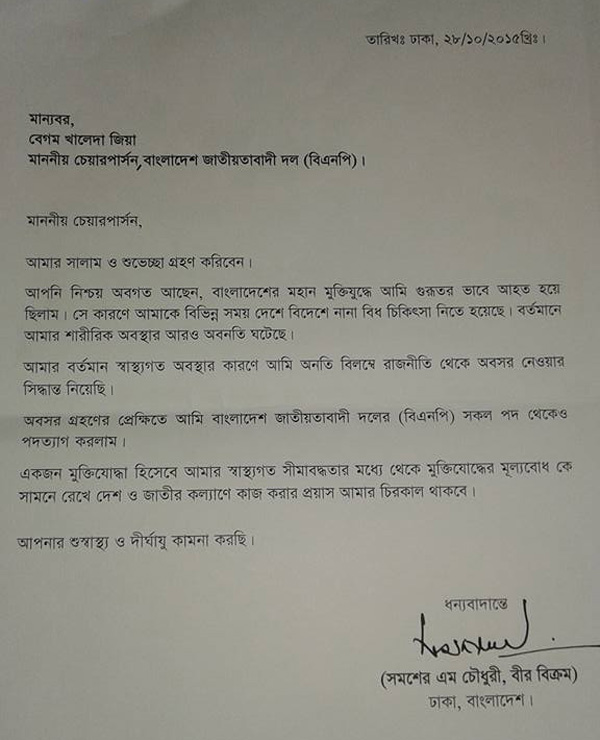 তারিখঃ ঢাকা, ২৮/১০/২০১৫খ্রিঃ।
মান্যবর,
বেগম খালেদা জিয়া
মাননীয় চেয়ারপার্সন, বাংলাদেশ জাতীয়তাবাদী দল (বিএনপি)।
মাননীয় চেয়ারপার্সন,
আমার সালাম ও শুভেচ্ছা গ্রহণ করিবেন।
আপনি নিশ্চয় অবগত আছেন, বাংলাদেশের মহান মুক্তিযুদ্ধে আমি গুরূতর ভাবে আহত হয়ে
ছিলাম। সে কারণে আমাকে বিভিন্ন সময় দেশে বিদেশে নানা বিধ চিকিৎসা নিতে হয়েছে। বর্তমানে
আমার শারীরিক অবস্থার আরও অবনতি ঘটেছে।
আমার বর্তমান স্বাস্থ্যগত অবস্থার কারণে আমি অনতি বিলম্বে রাজনীতি থেকে অবসর নেওয়ার
সিদ্ধান্ত নিয়েছি।
অবসর গ্রহণের প্রেক্ষিতে আমি বাংলাদেশ জাতীয়তাবাদী দলের (বিএনপি) সকল পদ থেকেও
পদত্যাগ করলাম।
একজন মুক্তিযোদ্ধা হিসেবে আমার স্বাস্থ্যগত সীমাবদ্ধতার মধ্যে থেকে মুক্তিযোদ্ধের মূল্যবোধ কে
সামনে রেখে দেশ ও জাতীর কল্যাণে কাজ করার প্রয়াস আমার চিরকাল থাকবে।
আপনার শুস্বাস্থ্য ও দীর্ঘায়ু কামনা করছি।
ধন্যবাদান্তে
(সমশের এম চৌধুরী, বীর বিক্রম)
ঢাকা, বাংলাদেশ।